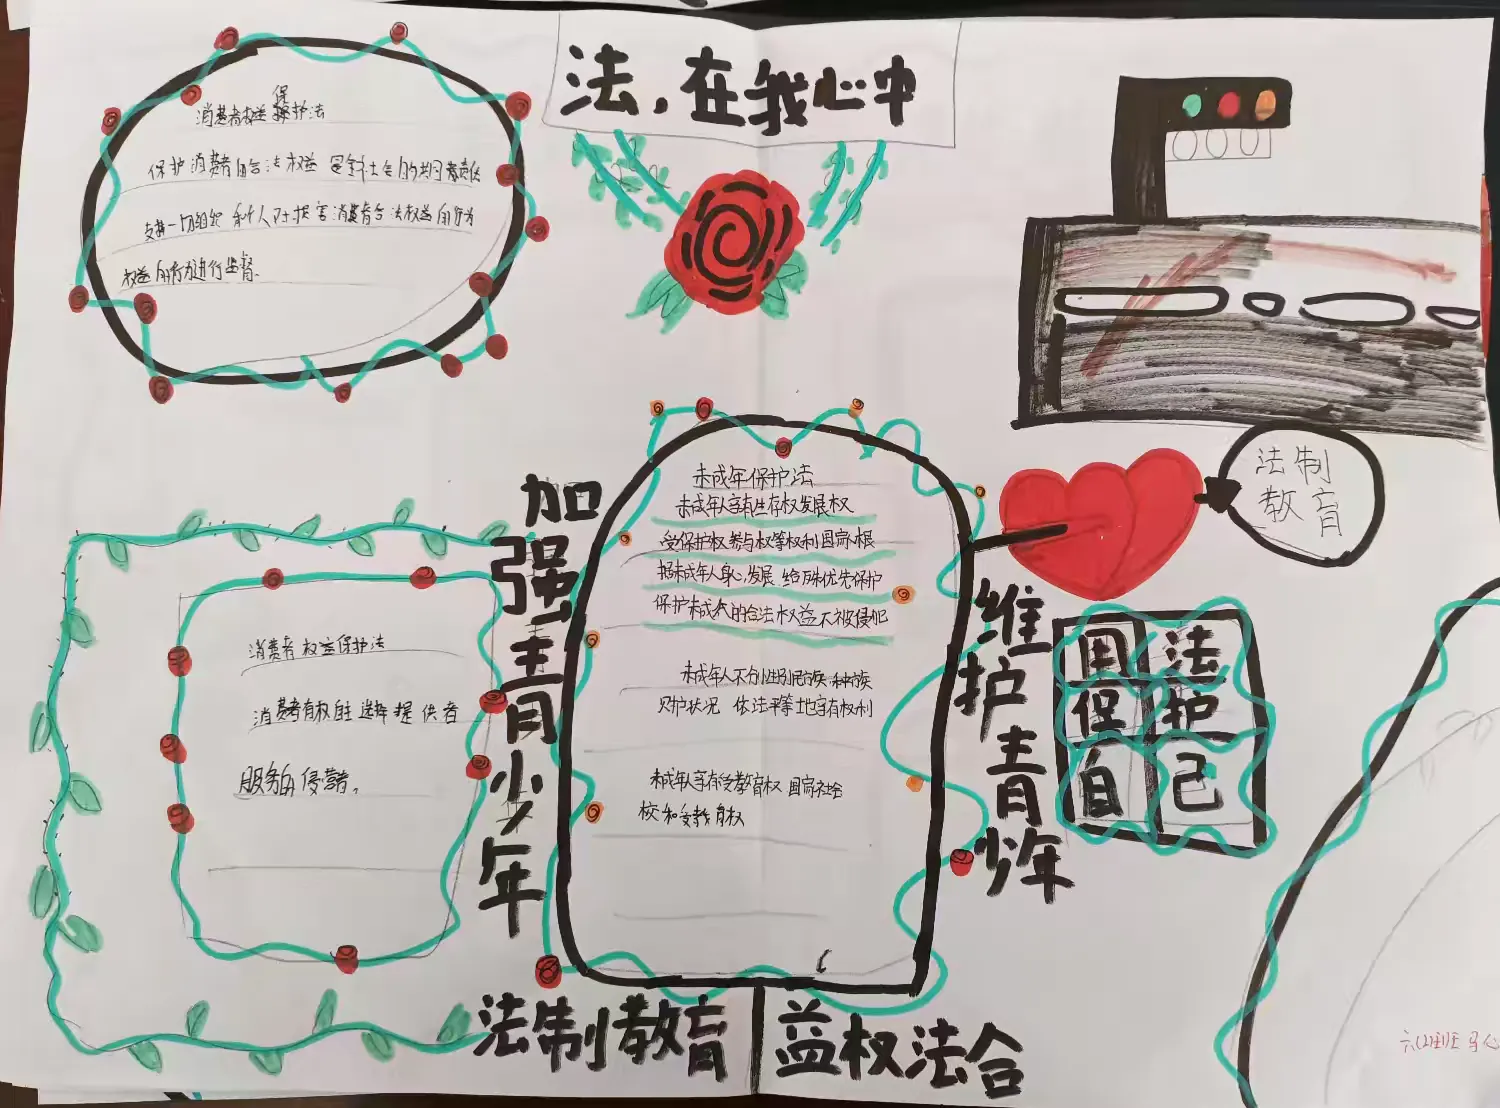 法，在我心中
消费者权益保护法
保护消费者的合法权益是全社会的共同责任
支持一切组织和个人对损害消费者合法权益的行为
权益的行为进行监督.
法制
教育
未成年保护法
未成年人享有生存权发展权
受保护权参与权等权利国家根
据未成年人身心发展给特殊优先保护
保护未成人的合法权益不被侵犯
未成年人不分性别民族种族
财产状况 依法平等地享有权利
未成年人享有受教育权国家社会
校和受教育权
加强青少年
法制教育
维护青少年
益权法合
用法
保护
自己
消费者权益保护法
消费者有权自主选择提供者
服务的侵者。
六(2)班